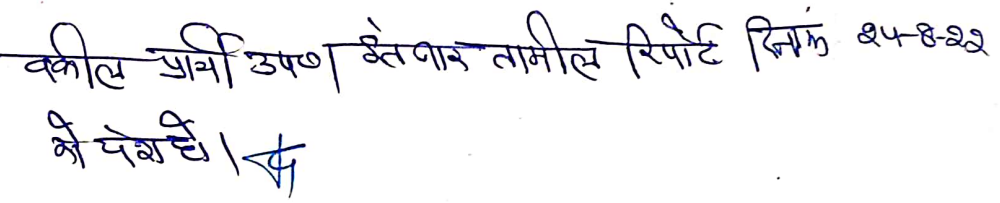 वकील प्रार्थी उप० । इंतजार तामील रिपोर्ट दिनांक २५-8-२२
को पेश हो ।